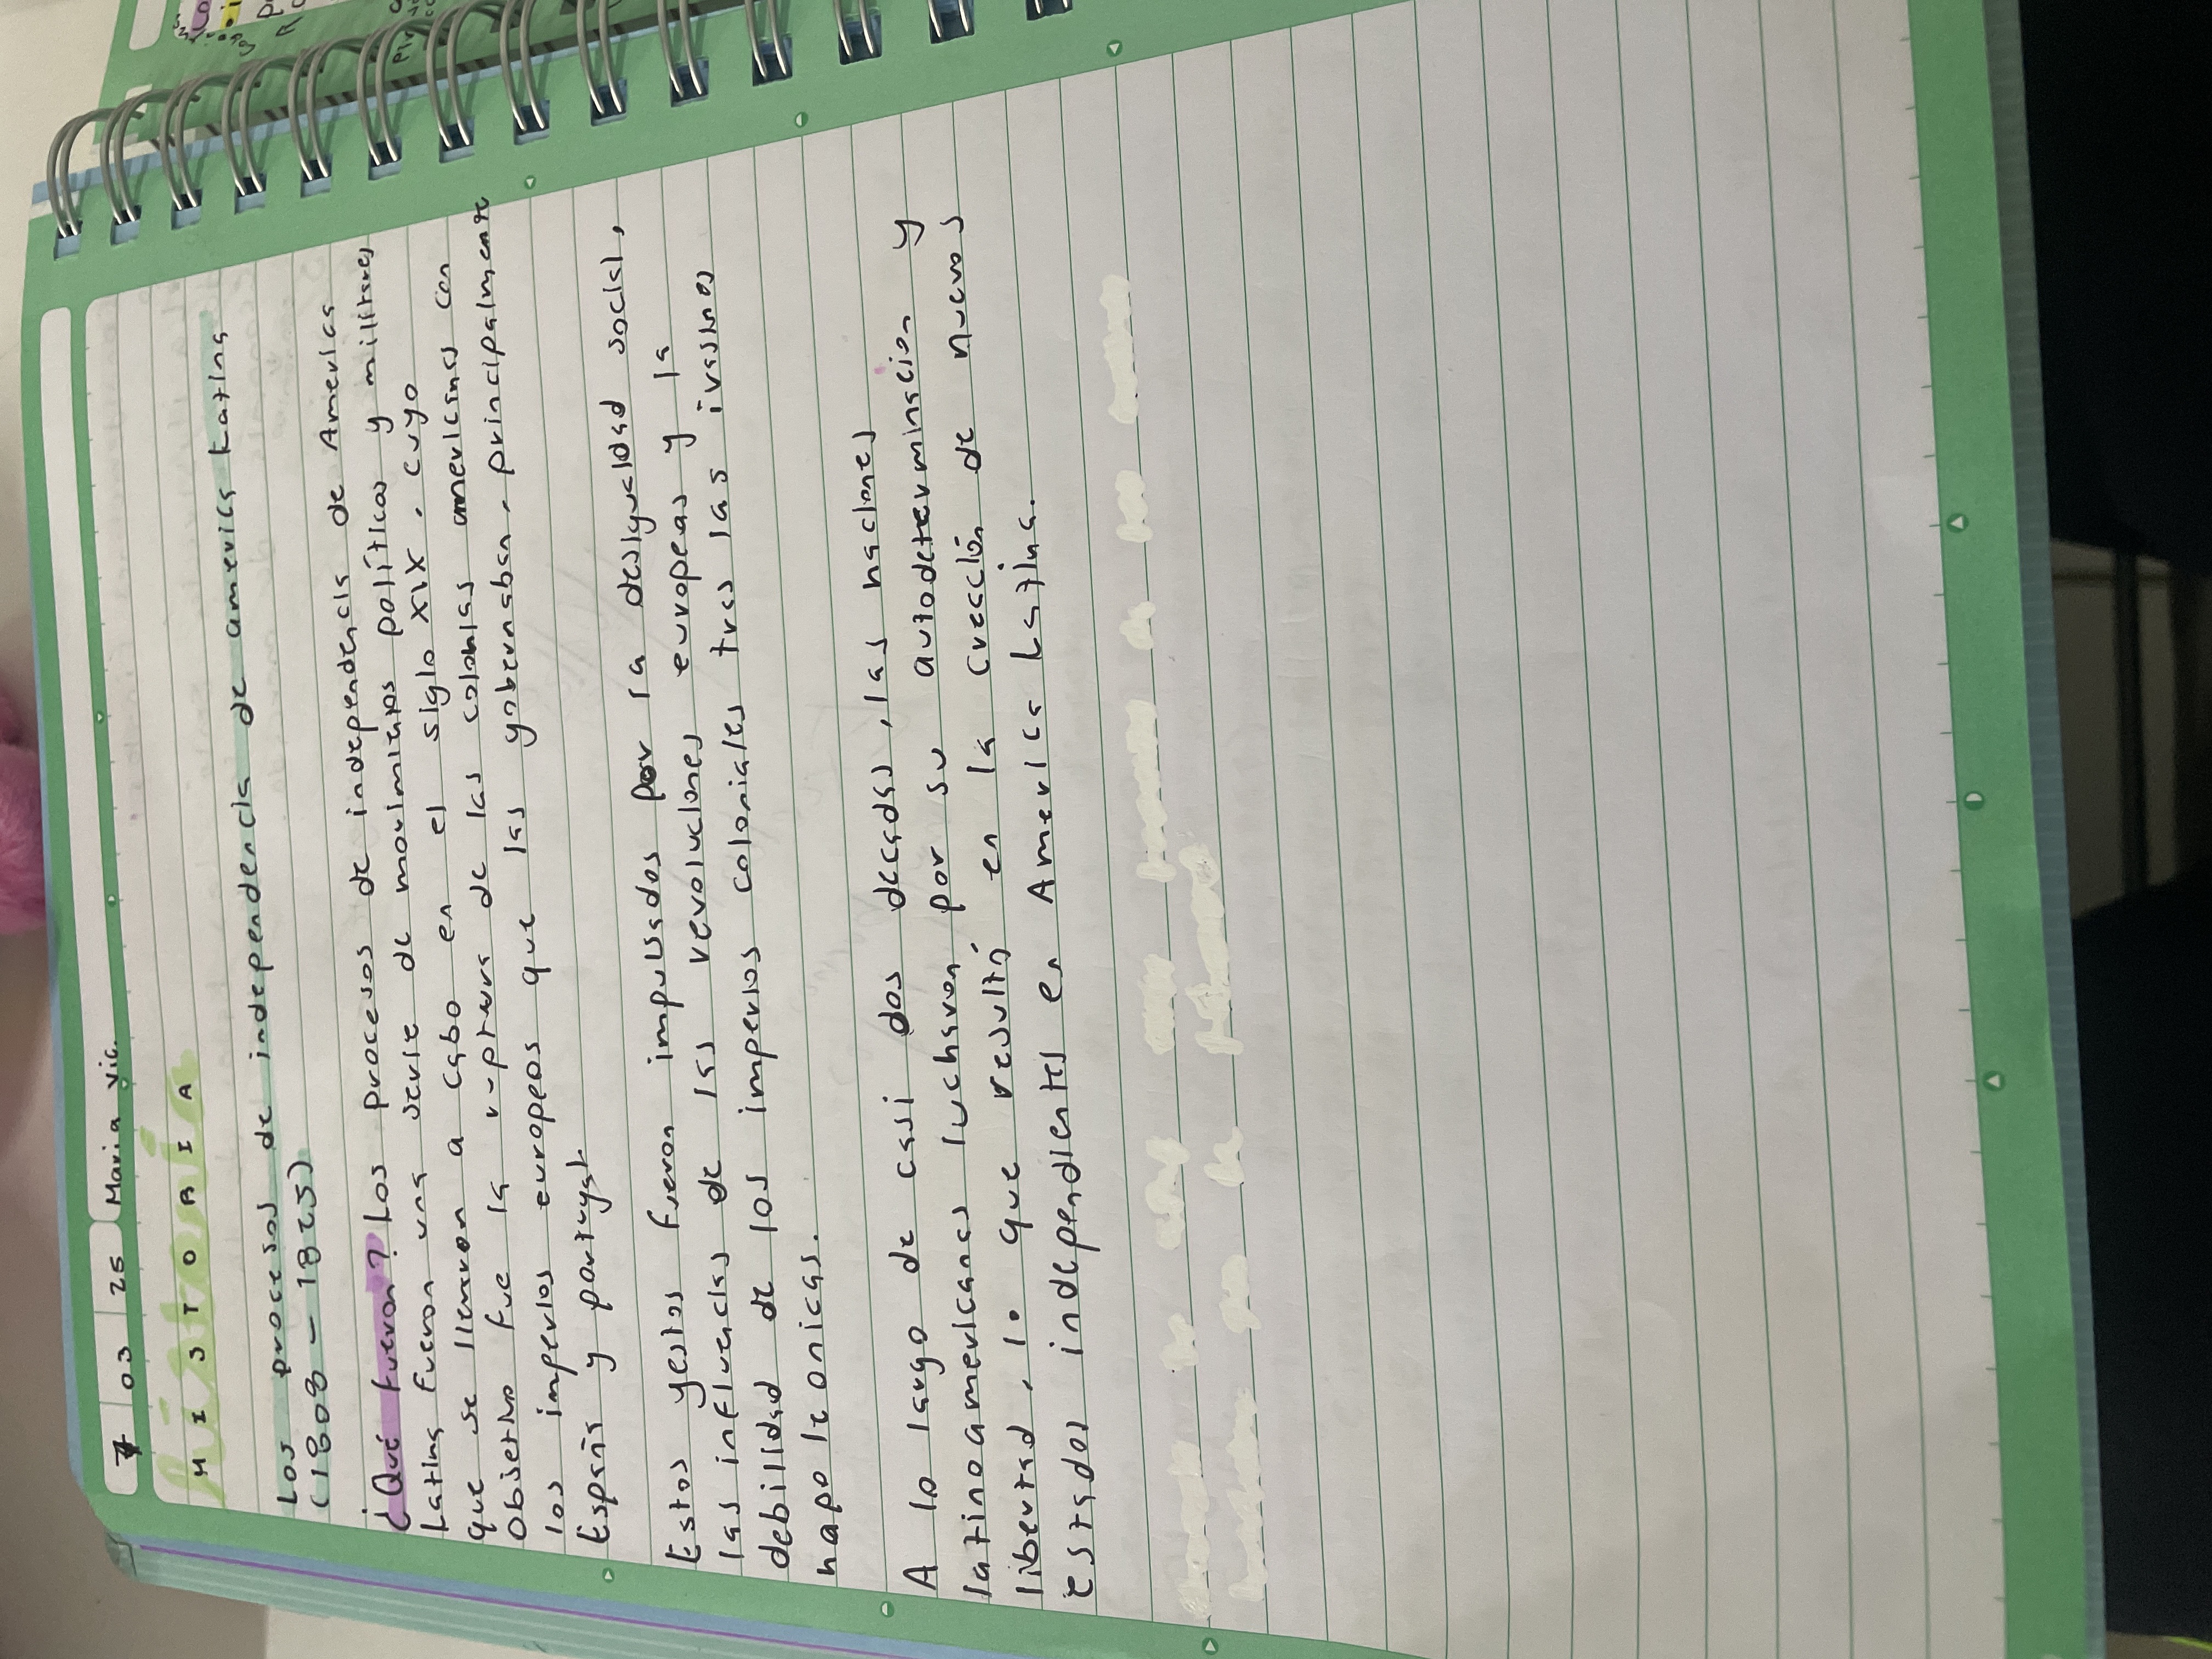 7 03 25 Maria Vic.
HISTORIA
Los procesos de independencia de america Latina
(1808 - 1825)
¿Qué fueron? Los procesos de independencia de America
Latina fueron una serie de movimientos políticos y militares
que se llevaron a cabo en el siglo XIX, cuyo
Objetivo fue la ruptura de las colonias americanas con
los imperios europeos que las gobernaban, principalmente
España y portugal
Estos gestos fueron impulsados por la desigualdad social,
las influencias de las revoluciones europeas y la
debilidad de los imperios coloniales tras las ivasines
napoleonicas.
A lo largo de casi dos decadas, las naciones
latinoamericanas lucharon por su autodeterminacion y
libertad, lo que resultó en la creación de nuevos
estados independientes en America Latina.